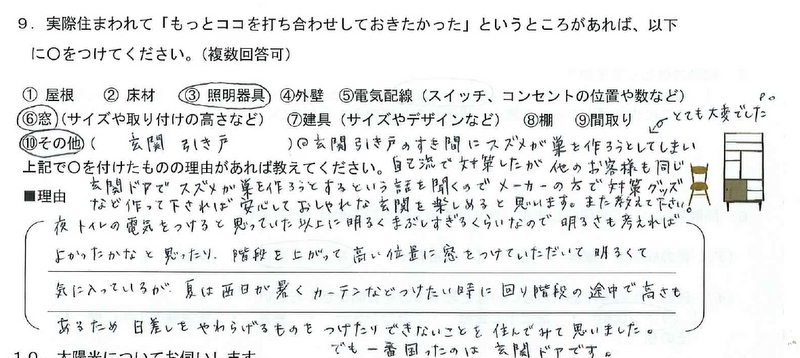 9．実際住まわれて「もっとココを打ち合わせしておきたかった」というところがあれば、以下
に〇をつけてください。（複数回答可）
① 屋根　② 床材　③ 照明器具　④外壁　⑤電気配線（スイッチ、コンセントの位置や数など）
⑥窓（サイズや取り付けの高さなど）　⑦建具（サイズやデザインなど）　⑧棚　⑨間取り
とても大変でした
⑩その他（　玄関 引き戸　）⑩玄関引き戸のすき間にスズメが巣を作ろうとしてしまい
上記で〇を付けたものの理由があれば教えてください。自己流で対策したが他のお客様も同じ
■理由　玄関ドアでスズメが巣を作ろうとするという話を聞くのでメーカーの方で対策グッズ
など作って下されば安心しておしゃれな玄関を楽しめると思います。また考えて下さい。
夜トイレの電気をつけると思っていた以上に明るくまぶしすぎるくらいなので明るさも考えれば
よかったかなと思ったり、階段を上がって高い位置に窓をつけていただいて明るくて
気に入っているが、夏は西日が暑くカーテンなどつけたい時に回り階段の途中で高さも
あるため日差しをやわらげるものをつけたりできないことを住んでみて思いました。
でも一番困ったのは玄関ドアです。
10．太陽光についてお伺いします